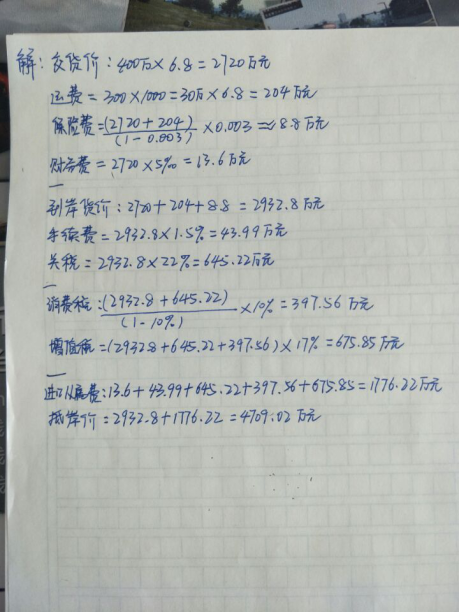 解: 交货价: 400万×6.8=2720万元
运费=300×1000=30万×6.8=204万元
保险费=(2720+204)/(1-0.003)×0.003≈8.8万元
财务费=2720×5‰=13.6万元
到岸货价: 2720+204+8.8=2932.8万元
手续费=2932.8×1.5%=43.99万元
关税=2932.8×22%=645.22万元
消费税:(2932.8+645.22)/(1-10%)×10%=397.56万元
增值税=(2932.8+645.22+397.56)×17%=675.85万元
进口从属费:13.6+43.99+645.22+397.56+675.85=1776.22万元
抵岸价=2932.8+1776.22=4709.02万元